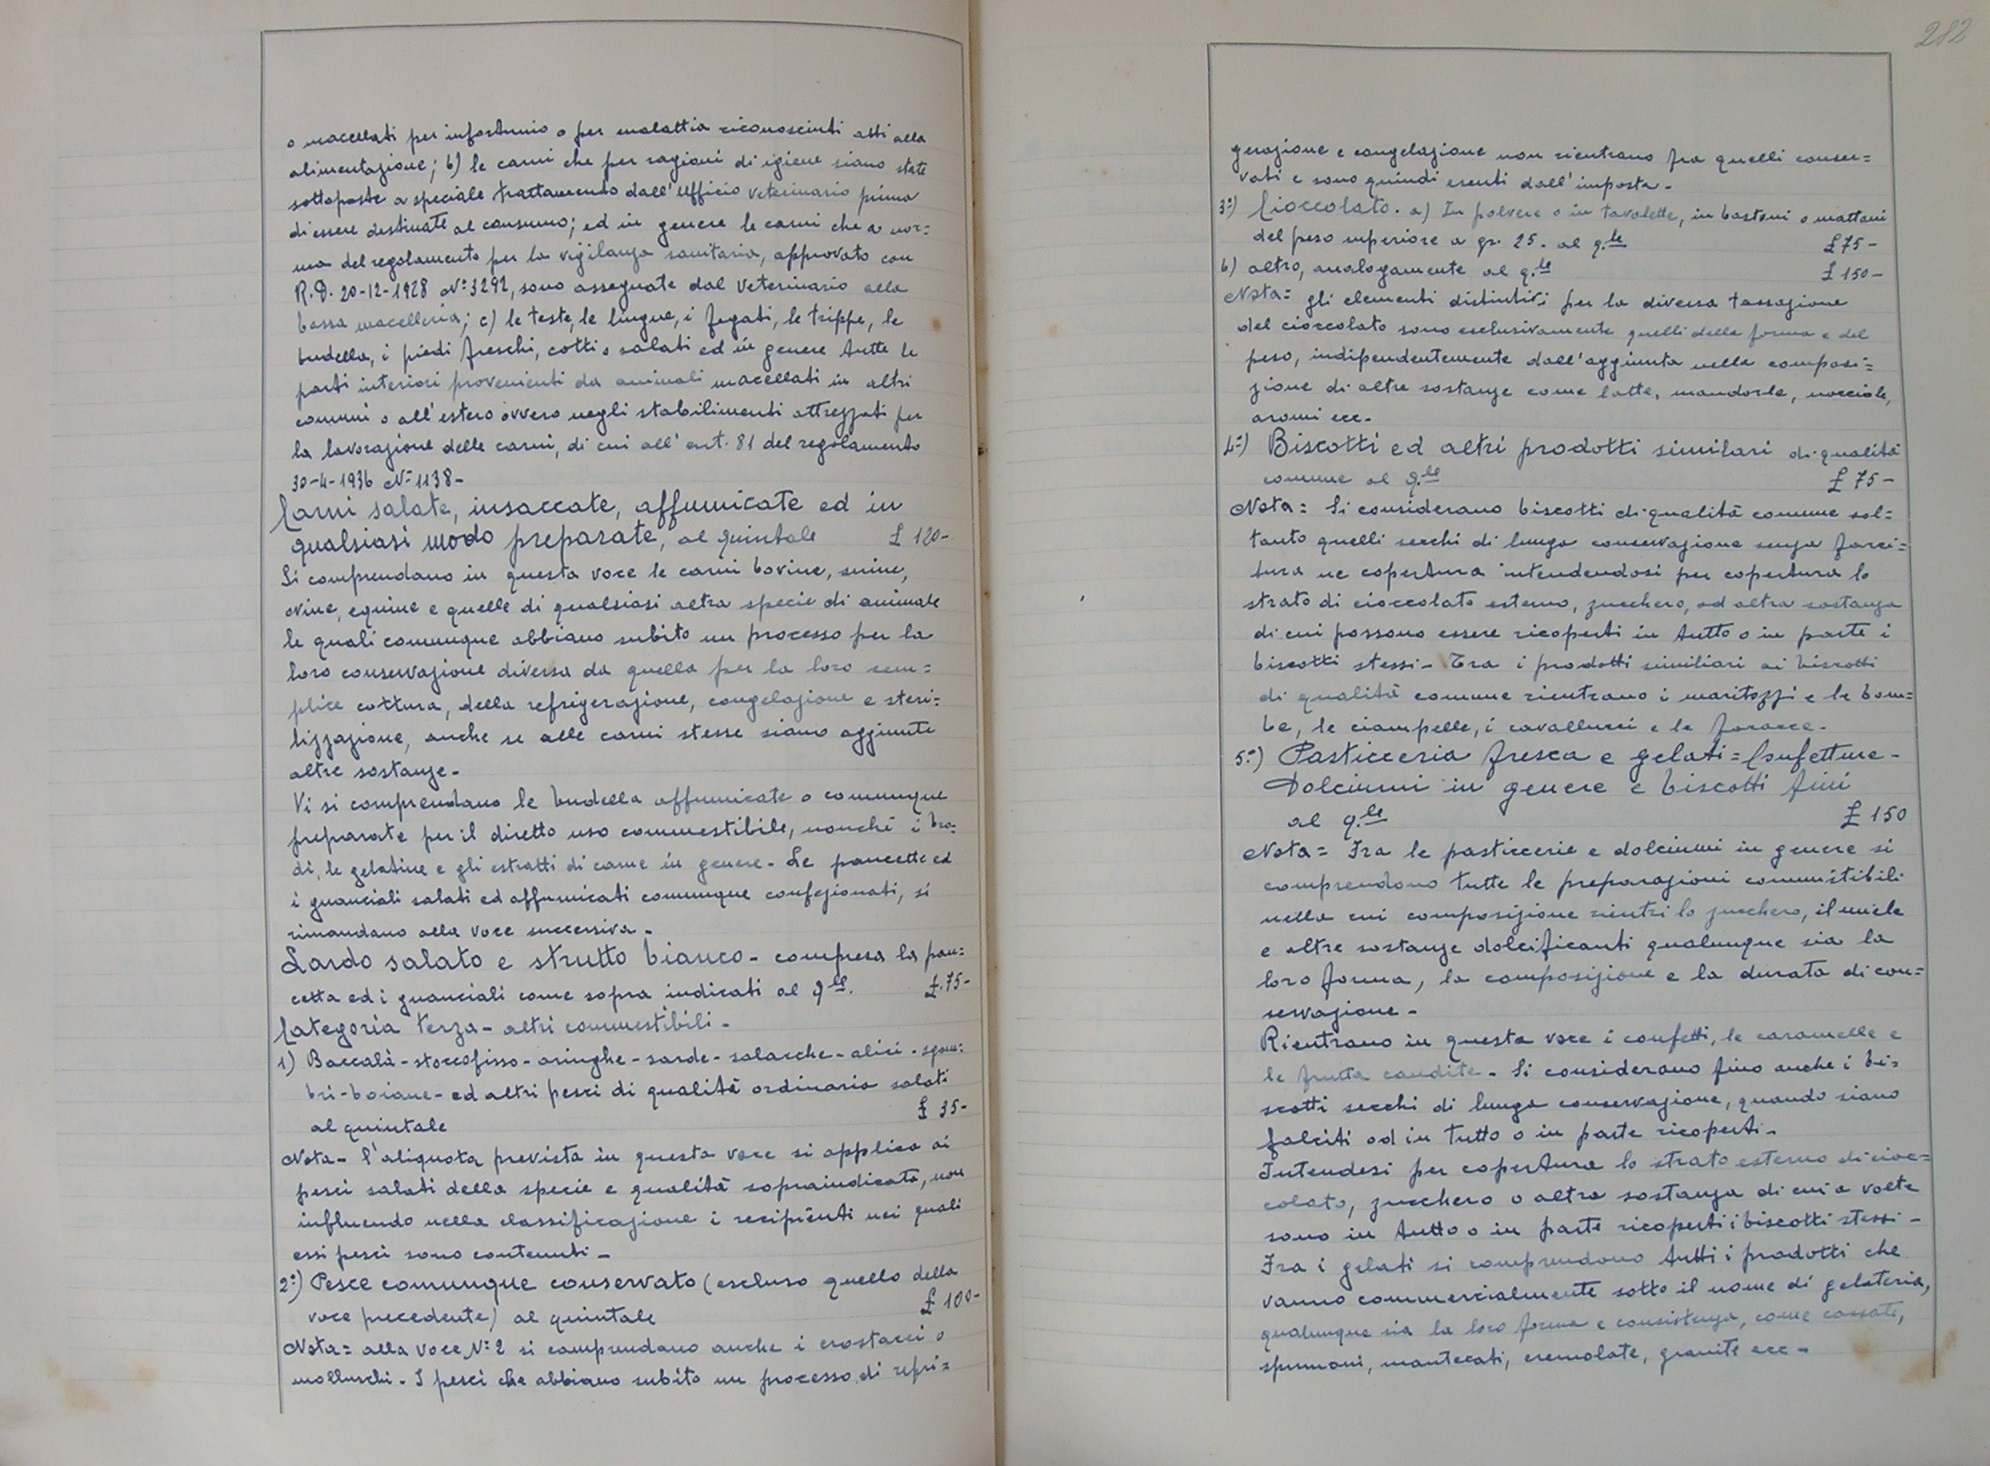 o macellati per infortunio o per malattia riconosciuti atti alla
alimentazione; b) le carni che per ragioni di igiene siano state
sottoposte a speciale trattamento dall'ufficio veterinario prima
di essere destinate al consumo; ed in genere le carni che a nor=
ma del regolamento per la vigilanza sanitaria, approvato con
R.D. 20-12-1928 N° 3292, sono assegnate dal Veterinario alla
bassa macelleria; c) le teste, le lingue, i fegati, le trippe, le
budella, i piedi freschi, cotti o salati ed in genere tutte le
parti interiori provenienti da animali macellati in altri
comuni o all'estero ovvero negli stabilimenti attrezzati per
la lavorazione delle carni, di cui all'art. 81 del regolamento
30-4-1936 N° 1138-
Carni salate, insaccate, affumicate ed in
qualsiasi modo preparate, al quintale £ 120-
Si comprendano in questa voce le carni bovine, suine,
ovine, equine e quelle di qualsiasi altra specie di animale
le quali comunque abbiano subito un processo per la
loro conservazione diversa da quella per la loro sem=
plice cottura, della refrigerazione, congelazione e steri=
lizzazione, anche se alle carni stesse siano aggiunte
altre sostanze-
Vi si comprendano le budella affumicate o comunque
preparate per il diretto uso commestibile, nonché i bro=
di, le gelatine e gli estratti di carne in genere- Le pancette ed
i guanciali salati ed affumicati comunque confezionati, si
rimandano alla voce successiva-
Lardo salato e strutto bianco- compresa la pan=
cetta ed i guanciali come sopra indicati al q.le. £.75-
Categoria Terza- altri commestibili-
1) Baccalà-stoccofisso-aringhe-sarde-salacche-alici-sgom=
bri-boiane- ed altri pesci di qualità ordinaria salati
al quintale £ 35-
Nota- l'aliquota prevista in questa voce si applica ai
pesci salati della specie e qualità sopraindicata, non
influendo nella classificazione i recipienti nei quali
essi pesci sono contenuti-
2°) Pesce comunque conservato (escluso quello della
voce precedente) al quintale £ 100-
Nota= alla voce N° 2 si comprendano anche i crostacei o
molluschi- I pesci che abbiano subito un processo di refri=
282
gerazione e congelazione non rientrano fra quelli conser=
vati e sono quindi esenti dall'imposta-
3°) Cioccolato. a) In polvere o in tavolette, in bastoni o mattoni
del peso superiore a gr. 25. al q.le £75-
b) altro, analogamente al q.le £ 150-
Nota= gli elementi distintivi per la diversa tassazione
del cioccolato sono esclusivamente quelli della forma e del
peso, indipendentemente dall'aggiunta nella composi=
zione di altre sostanze come latte, mandorle, nocciole,
aromi ecc-
4°) Biscotti ed altri prodotti similari di qualità
comune al q.le £ 75-
Nota= Si considerano biscotti di qualità comune sol=
tanto quelli secchi di lunga conservazione senza farci=
tura ne copertura intendendosi per copertura lo
strato di cioccolato esterno, zucchero, od altra sostanza
di cui possono essere ricoperti in tutto o in parte i
biscotti stessi- Tra i prodotti similiari ai biscotti
di qualità comune rientrano i maritozzi e le bom=
be, le ciampelle, i cavallucci e le focacce-
5°) Pasticceria fresca e gelati= Confetture-
Dolciumi in genere e biscotti fini
al q.le £ 150
Nota= Fra le pasticcerie e dolciumi in genere si
comprendono tutte le preparazioni commistibili
nella cui composizione rientri lo zucchero, il miele
e altre sostanze dolcificanti qualunque sia la
loro forma, la composizione e la durata di con=
servazione-
Rientrano in questa voce i confetti, le caramelle e
le frutta candite- Si considerano fino anche i bi=
scotti secchi di lunga conservazione, quando siano
falciti od in tutto o in parte ricoperti-
Intendesi per copertura lo strato esterno di cioc=
colato, zucchero o altra sostanza di cui a volte
sono in tutto o in parte ricoperti i biscotti stessi-
Fra i gelati si comprendono tutti i prodotti che
vanno commercialmente sotto il nome di gelateria,
qualunque sia la loro forma e consistenza, come cassate,
spumoni, mantecati, cremolate, granite ecc-